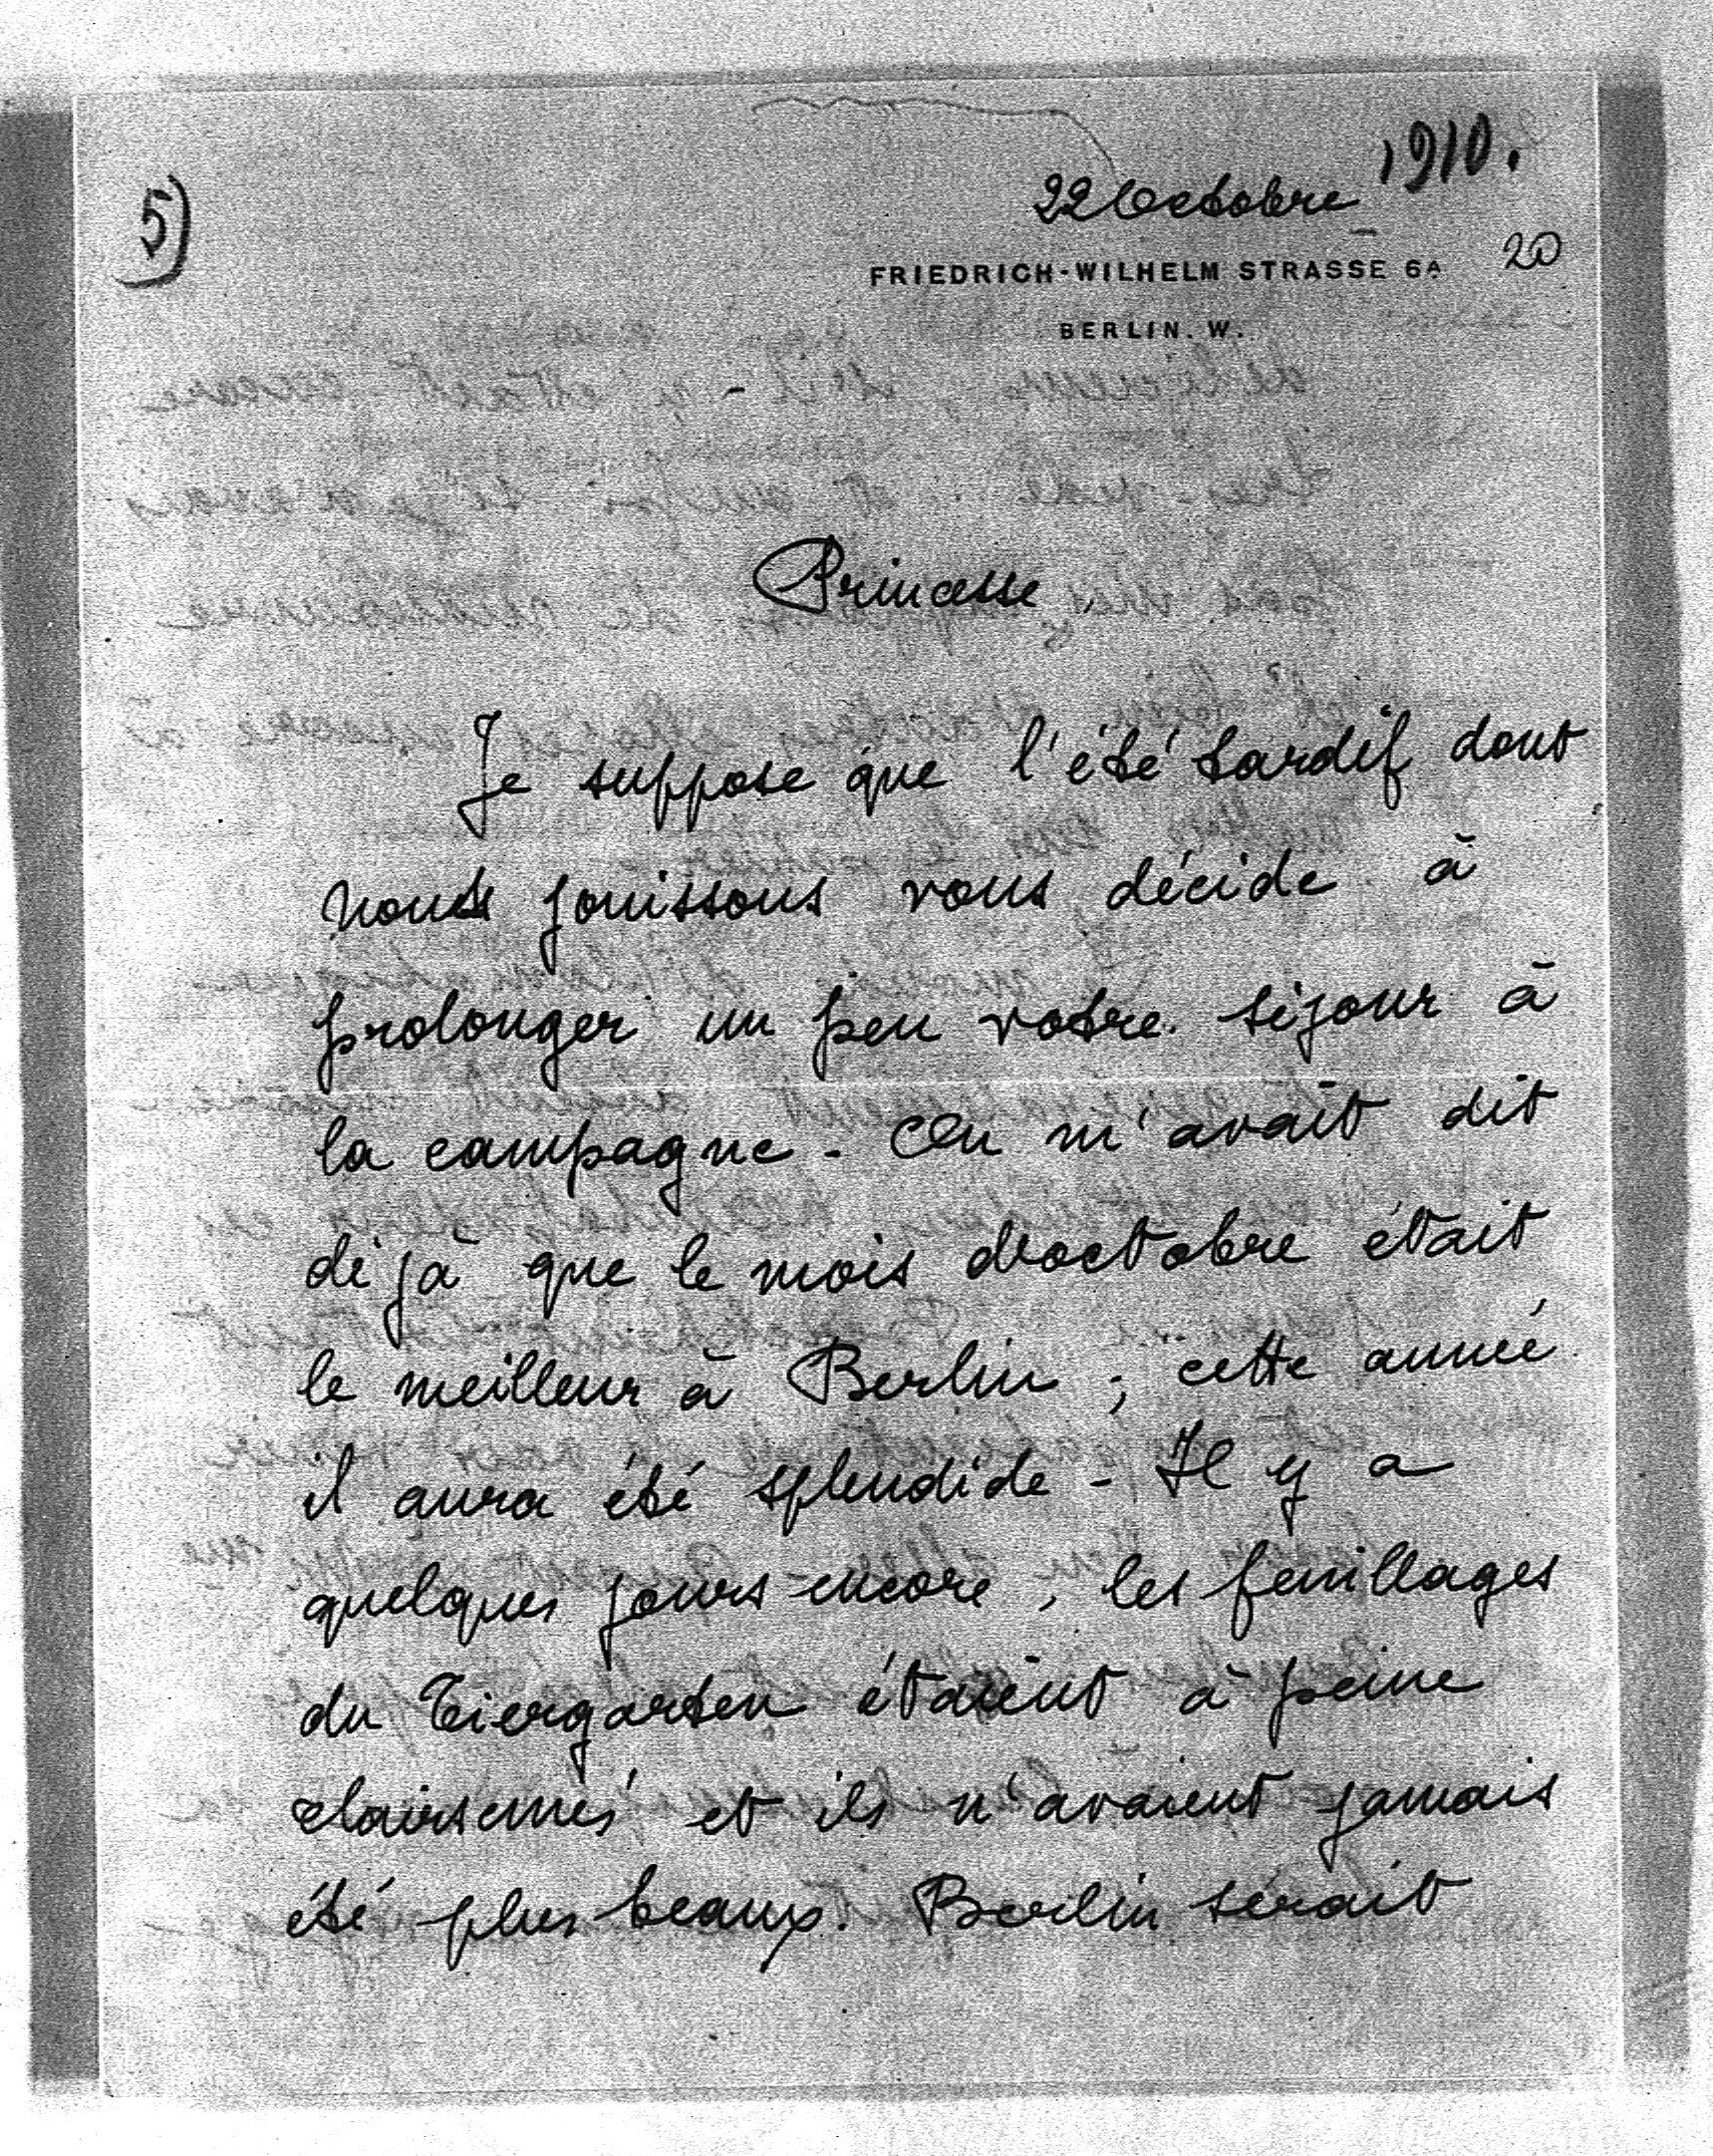 5)
22 Octobre 1910.
20
FRIEDRICH-WILHELM STRASSE 6A
BERLIN. W.
Princesse,
Je suppose que l'été tardif dont
nous jouissons vous décide à
prolonger un peu votre séjour à
la campagne - On m'avait dit
déjà que le mois d'octobre était
le meilleur à Berlin ; cette année
il aura été splendide - Il y a
quelques jours encore, les feuillages
du Tiergarten étaient à peine
clairsemés et ils n'avaient jamais
été plus beaux. Berlin serait